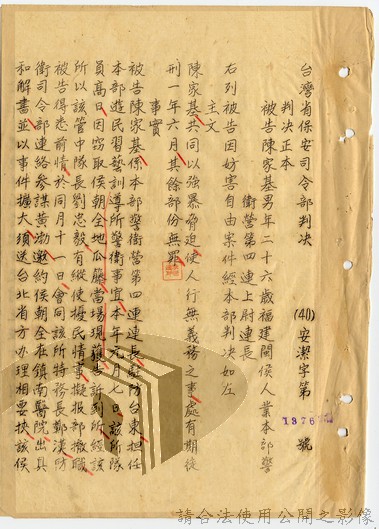 台灣省保安司令部判決
(40)安潔字第
1376
號
判決正本
被告陳家基男年二十六歲福建閩侯人業本部警
衛營第四連上尉連長
右列被告因妨害自由案件經本部判決如左
主文
陳家基共同以強暴脅迫使人行無義務之事處有期徒
刑一年六月其餘部份無罪
事實
被告陳家基係本部警衛營第四連連長駐防台東担任
本部遊民習藝訓導所警衛事宜本年元月七日該所隊
員高日因窃取侯朝全地瓜籐當場現獲告訴到所經該
所以該管中隊長劉忠毅有縱使擾民情事擬報部撤職
被告得悉前情於同月十一日會同該所特務長鄭漢防
衛司令部連絡參謀黃渤邀約侯朝全在鎮南醫院出具
和解書並以事件擴大須送台北省方辦理相要挾該侯
請合法使用公開之影像